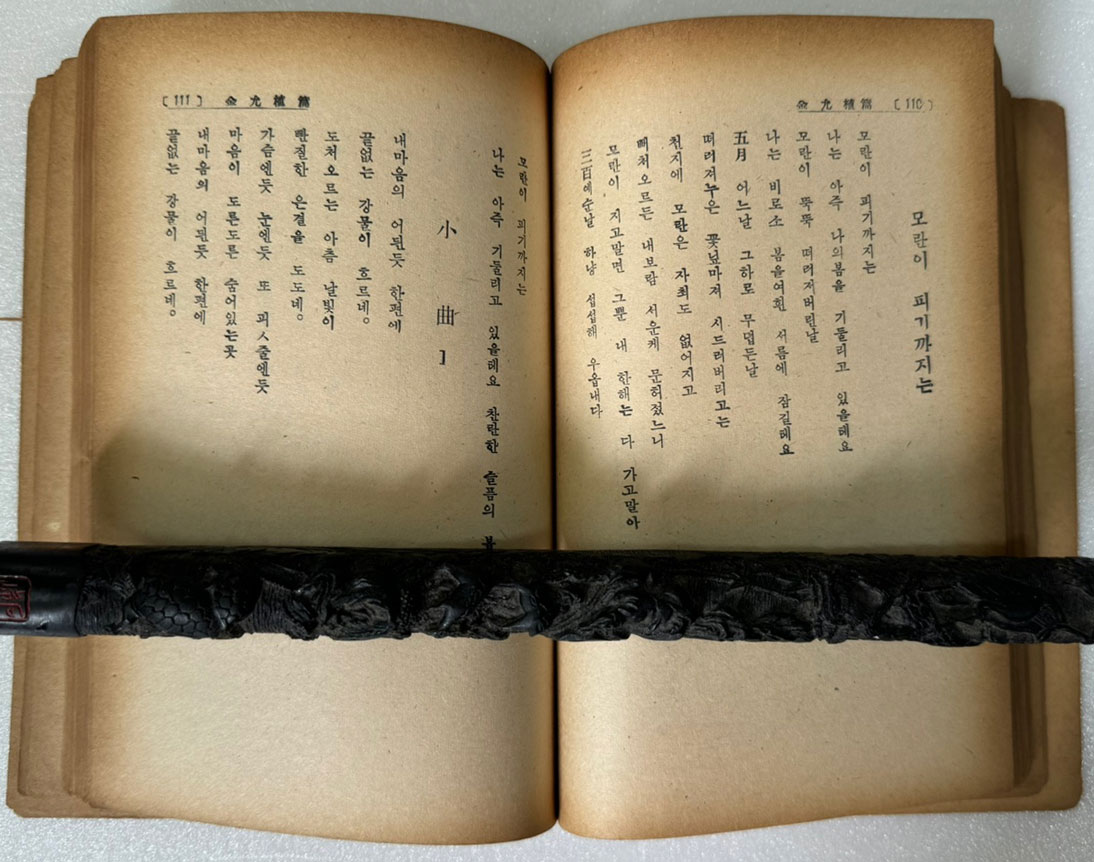 金允植篇 〔110〕
모란이 피기까지는
모란이 피기까지는
나는 아즉 나의봄을 기둘리고 있을테요
모란이 뚝뚝 떠러져버린날
나는 비로소 봄을여흰 서름에 잠길테요
五月 어느날 그하로 무덥든날
떠러져누은 꽃닢마져 시드러버리고는
천지에 모란은 자최도 없어지고
뻐처오르든 내보람 서운케 문허졌느니
모란이 지고말면 그뿐 내 한해는 다 가고말아
三百예순날 하냥 섭섭해 우옵내다
〔111〕 金允植篇
모란이 피기까지는
나는 아즉 기둘리고 있을테요 찬란한 슬픔의
小曲 1
내마음의 어딘듯 한편에
끝없는 강물이 흐르네。
도처오르는 아츰 날빛이
빤질한 은결을 도도네。
가슴엔듯 눈엔듯 또 피ㅅ줄엔듯
마음이 도른도른 숨어있는곳
내마음의 어딘듯 한편에
끝없는 강물이 흐르네。